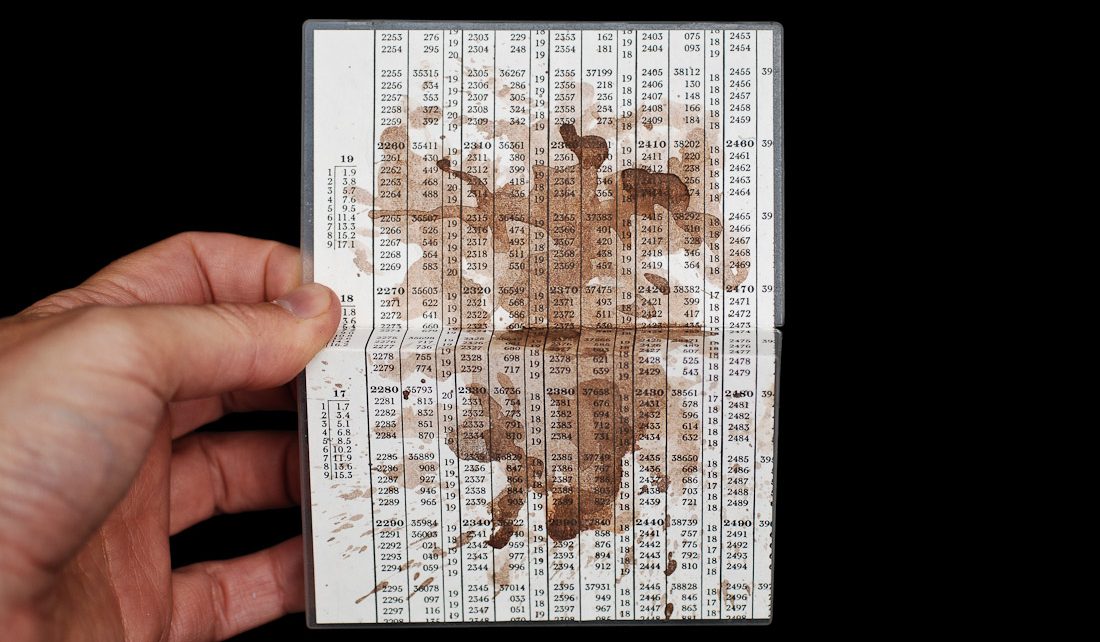 2253 276 19 2303 229 19 2353 162 19 2403 075 18 2453
2254 295 20 2304 248 19 2354 181 18 2404 093 19 2454
2255 35315 19 2305 36267 19 2355 37199 19 2405 38112 18 2455 39
2256 334 19 2306 286 19 2356 218 18 2406 130 18 2456
2257 353 19 2307 305 19 2357 236 18 2407 148 18 2457
2258 372 20 2308 324 18 2358 254 19 2408 166 18 2458
2259 392 19 2309 342 19 2359 273 18 2409 184 18 2459
2260 35411 19 2310 36361 19 37291 2410 38202 18 2460 39
19 2261 430 19 2311 380 19 2361 2411 220 18 2461
1 1.9 2262 449 19 2312 399 19 2362 328 18 2412 2462
2 3.8 2263 468 20 2313 418 18 2363 346 2413 256 18 2463
3 5.7 2264 488 19 2314 436 19 2364 365 18 274 18 2464
4 7.6
5 9.5 2265 2315 36455 19 2365 37383 18 2415 38292 18 2465 39
6 11.4 2266 526 19 2316 474 19 2366 401 19 2416 310 18 2466
7 13.3 2267 545 19 2317 493 18 2367 420 18 2417 328 18 2467
8 15.2 2268 564 19 2318 511 19 2368 438 19 2418 346 18 2468
9 17.1 2269 583 20 2319 530 19 2369 457 18 2419 364 18 2469
18 2270 35603 19 2320 36549 19 2370 37475 18 2420 38382 17 2470 39
1.8 2271 622 19 2321 568 18 2371 493 18 2421 399 18 2471
3.6 2272 641 19 2322 586 19 2372 511 19 2422 417 18 2472
2273 660 19 2323 605 19 2373 530 18 2423 435 18 2473
2277 736 2427 507 2477
2278 755 19 2328 698 19 2378 621 18 2428 525 18 2478
2279 774 19 2329 717 19 2379 639 19 2429 543 18 2479
17 2280 35793 20 2330 36736 18 2380 37658 18 2430 38561 17 2480 39
1 1.7 2281 813 19 2331 754 19 2381 676 18 2431 578 18 2481
2 3.4 2282 832 19 2332 773 18 2382 694 18 2432 596 18 2482
3 5.1 2283 851 19 2333 791 19 2383 712 19 2433 614 18 2483
4 6.8 2284 870 19 2334 810 19 2384 731 18 2434 632 18 2484
5 8.5
6 10.2 2285 35889 19 2335 36829 18 2385 37749 18 2435 38650 18 2485 39
7 11.9 2286 908 19 2336 847 19 2386 767 18 2436 668 18 2486
8 13.6 2287 927 19 2337 866 18 2387 18 2437 686 17 2487
9 15.3 2288 946 19 2338 884 19 2388 803 19 2438 703 18 2488
2289 965 19 2339 903 19 2389 822 18 2439 721 18 2489
2290 35984 19 2340 36922 18 37840 18 2440 38739 18 2490 39
2291 36003 18 2341 940 19 2391 858 18 2441 757 18 2491
2292 021 19 2342 959 18 2392 876 18 2442 775 17 2492
2293 040 19 2343 977 19 2393 894 18 2443 792 18 2493
2294 059 19 2344 996 18 2394 912 19 2444 810 18 2494
2295 36078 19 2345 37014 19 2395 37931 18 2445 38828 18 2495 39
2296 097 19 2346 033 18 2396 949 18 2446 846 17 2496
2297 116 19 2347 051 19 2397 967 18 2447 863 18 2497